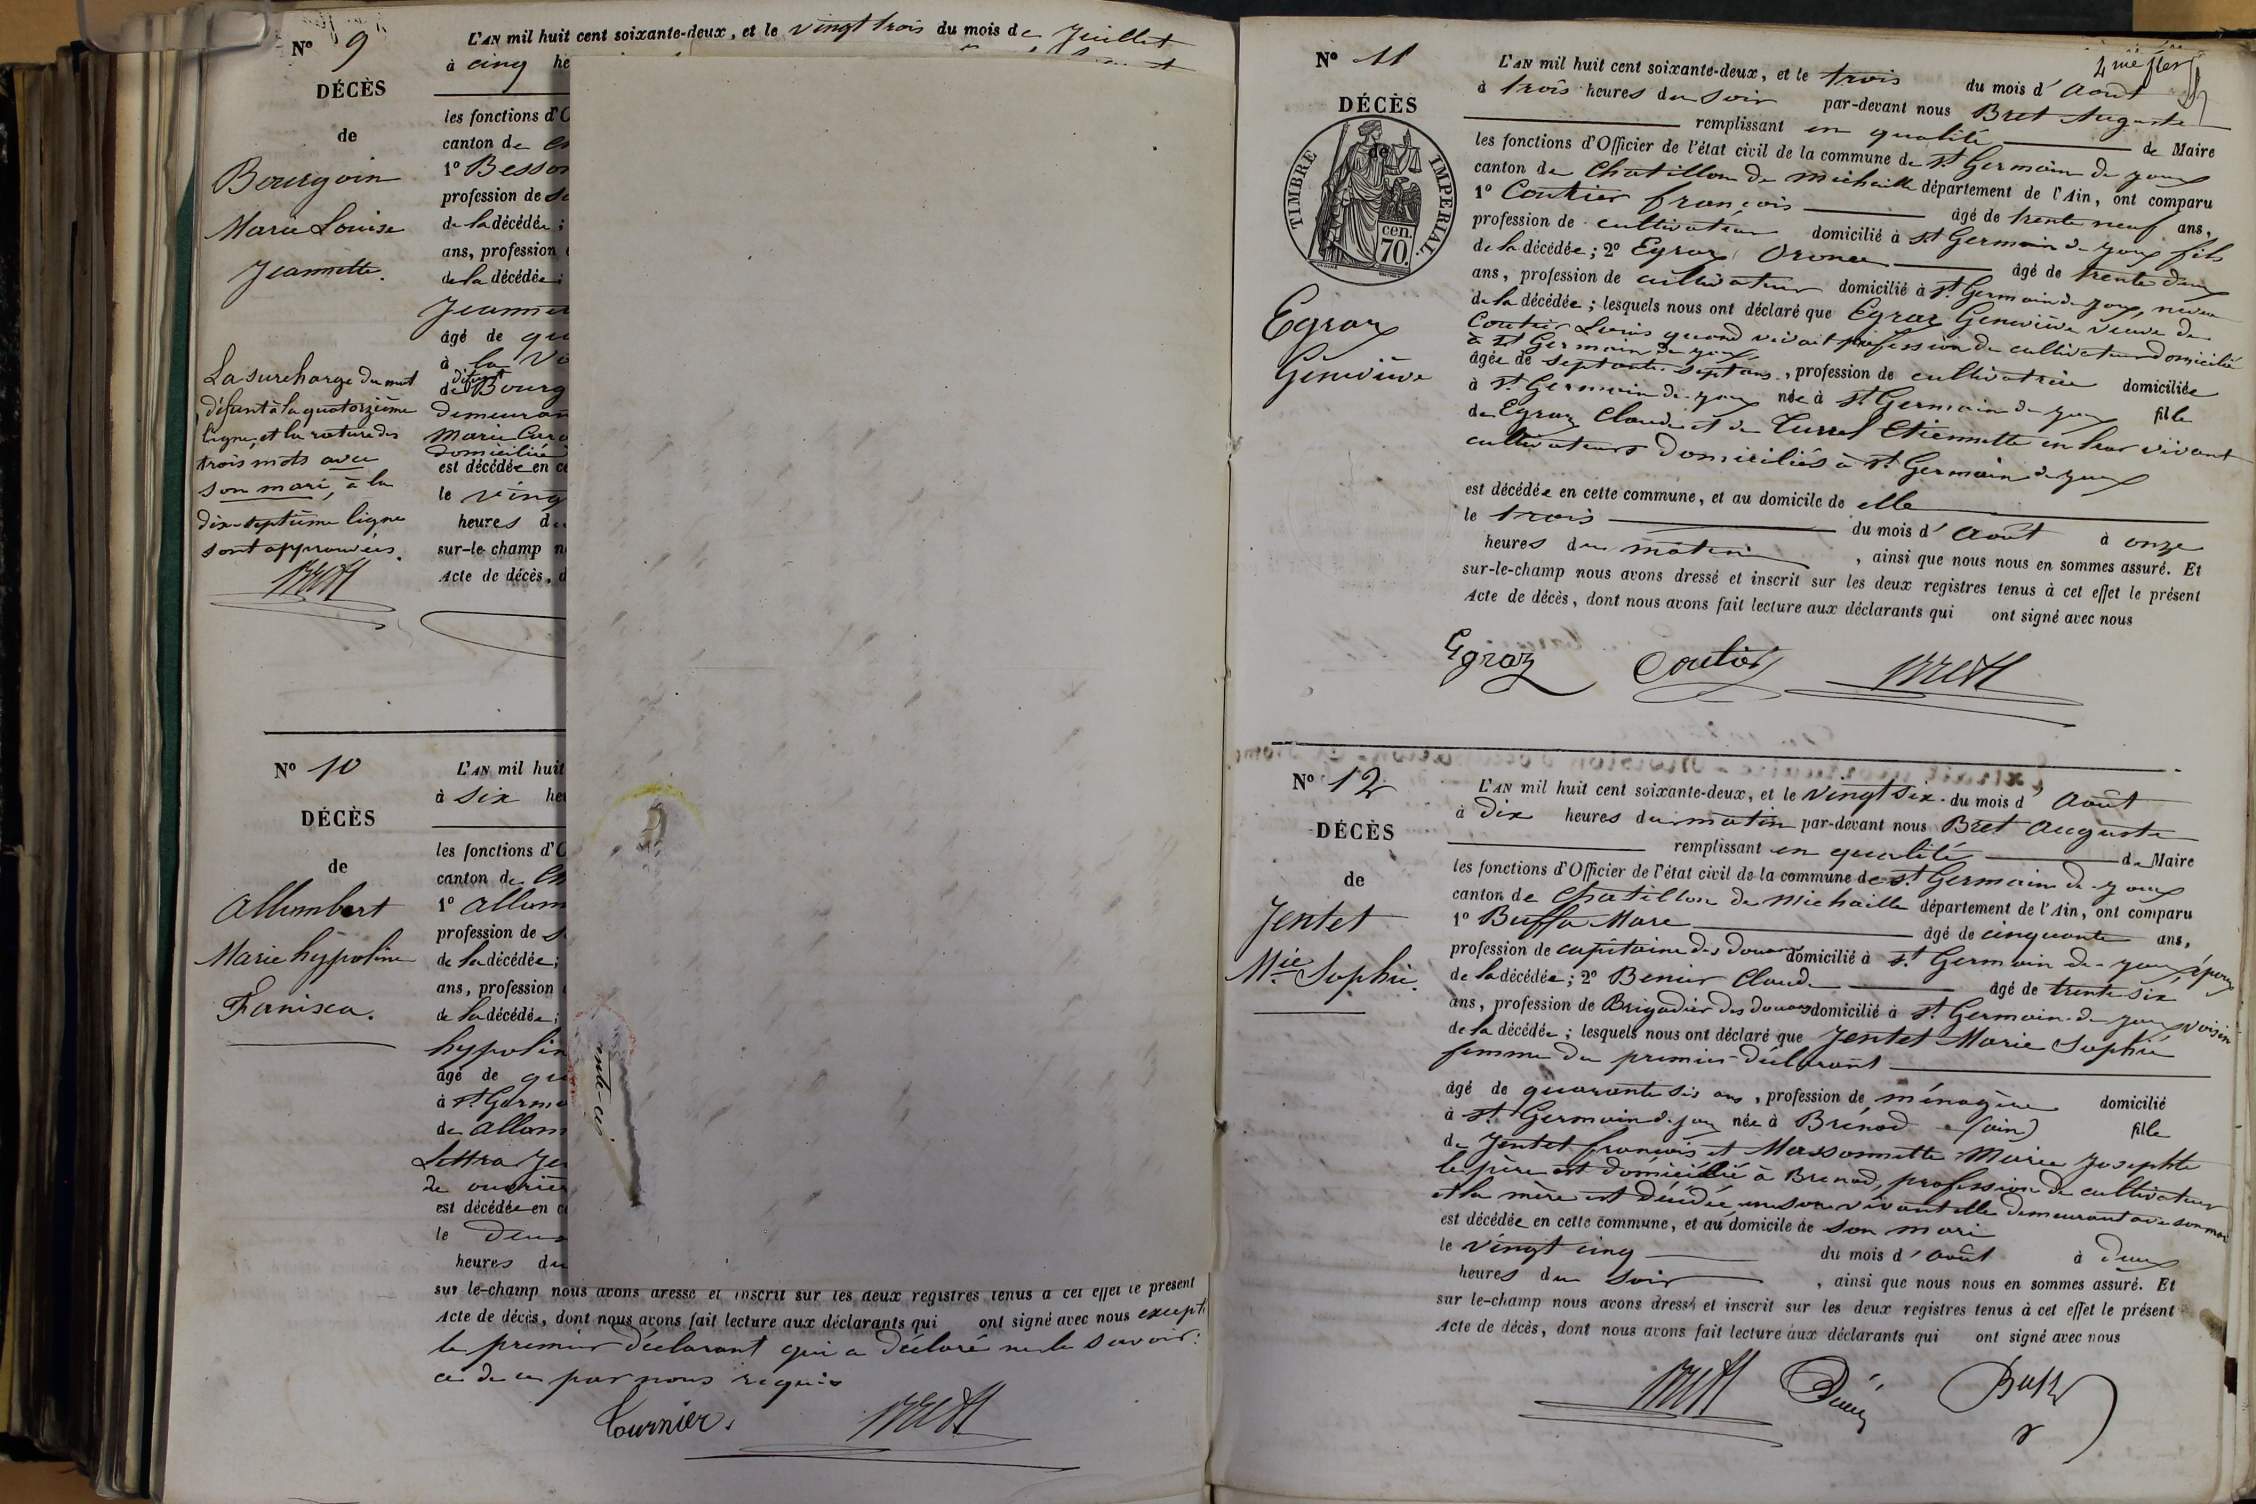 N° 9
L'AN mil huit cent soixante-deux, et le vingt trois du mois de Juillet
à cinq he
DÉCÈS
de
Bourgoin
Marie Louise
Jeannette.
les fonctions d'O
canton de
1° Besson
profession de
de la décédée;
ans, profession
de la décédée;
âgé de
à la
défunt
de Bourg
demeuran
Marie
domiciliée
est décédée en c
le ving
heures d
sur-le-champ n
Acte de décès, d
La surcharge du mot
défunt à la quatorzième
ligne, et la rature des
trois mots avec
son mari, à la
dix-septième ligne
sont approuvées.
Bret
N° 10
L'AN mil huit
à six he
DÉCÈS
de
Allombert
Marie hypoline
Fanisca.
les fonctions d'O
canton de Ch
1° Allom
profession de
de la décédée;
ans, profession
de la décédée;
hypolin
âgé de qu
à St Germa
de Allom
de ouvrier
est décédée en c
le deux
heures du
sur le-champ nous avons dressé et inscrit sur les deux registres tenus à cet effet le présent
Acte de décès, dont nous avons fait lecture aux déclarants qui ont signé avec nous excepté
le premier déclarant qui a déclaré ne le savoir
ce de ce par nous requis
Tournier.
Bret
N° 11
4me flet
L'AN mil huit cent soixante-deux, et le trois du mois d'Août
à trois heures du soir par-devant nous Bret Auguste
remplissant en qualité de Maire
DÉCÈS
de
TIMBRE IMPERIAL.
70 cen.
Egraz
Geneviève
les fonctions d'Officier de l'état civil de la commune de St Germain de Joux
canton de Chatillon de Michaille département de l'Ain, ont comparu
1° Coutier françois âgé de trente neuf ans,
profession de cultivateur domicilié à St Germain de Joux fils
de la décédée; 2° Egraz Oronce âgé de trente deux
ans, profession de cultivateur domicilié à St Germain de Joux, neveu
de la décédée; lesquels nous ont déclaré que Egraz Geneviève veuve de
Coutier Louis quand vivait profession de cultivateur domicilié
à St Germain de Joux,
âgée de septante sept ans, profession de cultivatrice domiciliée
à St Germain de Joux née à St Germain de Joux fille
de Egraz Claude et de Turrel Etiennette en leur vivant
cultivateurs domiciliés à St Germain de Joux
est décédée en cette commune, et au domicile de elle
le trois du mois d'Août à onze
heures du matin, ainsi que nous nous en sommes assuré. Et
sur-le-champ nous avons dressé et inscrit sur les deux registres tenus à cet effet le présent
Acte de décès, dont nous avons fait lecture aux déclarants qui ont signé avec nous
Egraz Coutier Bret
N° 12
L'AN mil huit cent soixante-deux, et le vingt six du mois d'Août
à dix heures du matin par-devant nous Bret Auguste
remplissant en qualité de Maire
DÉCÈS
de
Jentet
Mie Sophie.
les fonctions d'Officier de l'état civil de la commune de St Germain de Joux
canton de Chatillon de Michaille département de l'Ain, ont comparu
1° Buffa Marc âgé de cinquante ans,
profession de capitaine des douanes domicilié à St Germain de Joux, époux
de la décédée; 2° Benier Claude âgé de trente six
ans, profession de Brigadier des douanes domicilié à St Germain de Joux voisin
de la décédée; lesquels nous ont déclaré que Jentet Marie Sophie
femme du premier déclarant
âgé de quarante six ans, profession de ménagère domicilié
à St Germain de Joux née à Brénod (ain) fille
de Jentet françois et Massonnette Marie Josephte
le père est domicilié à Brenod, profession de cultivateur
et la mère est décédée, en son vivant elle demeurant avec son mari
est décédée en cette commune, et au domicile de son mari
le vingt cinq du mois d'août à deux
heures du soir, ainsi que nous nous en sommes assuré. Et
sur le-champ nous avons dressé et inscrit sur les deux registres tenus à cet effet le présent
Acte de décès, dont nous avons fait lecture aux déclarants qui ont signé avec nous
Bret